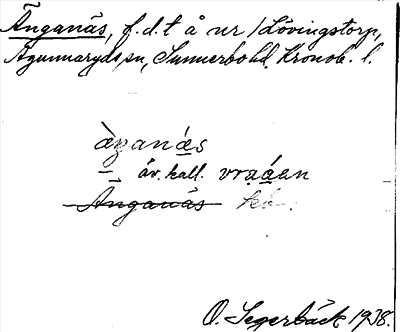 Änganäs, f.d. t å nr 1 Lövingstorp,
Agunnaryds sn, Sunnerbo hd. Kronob. l.
äŋanæs
äv. kall. vraåan
Änganäs
O. Segerbäck 1938.